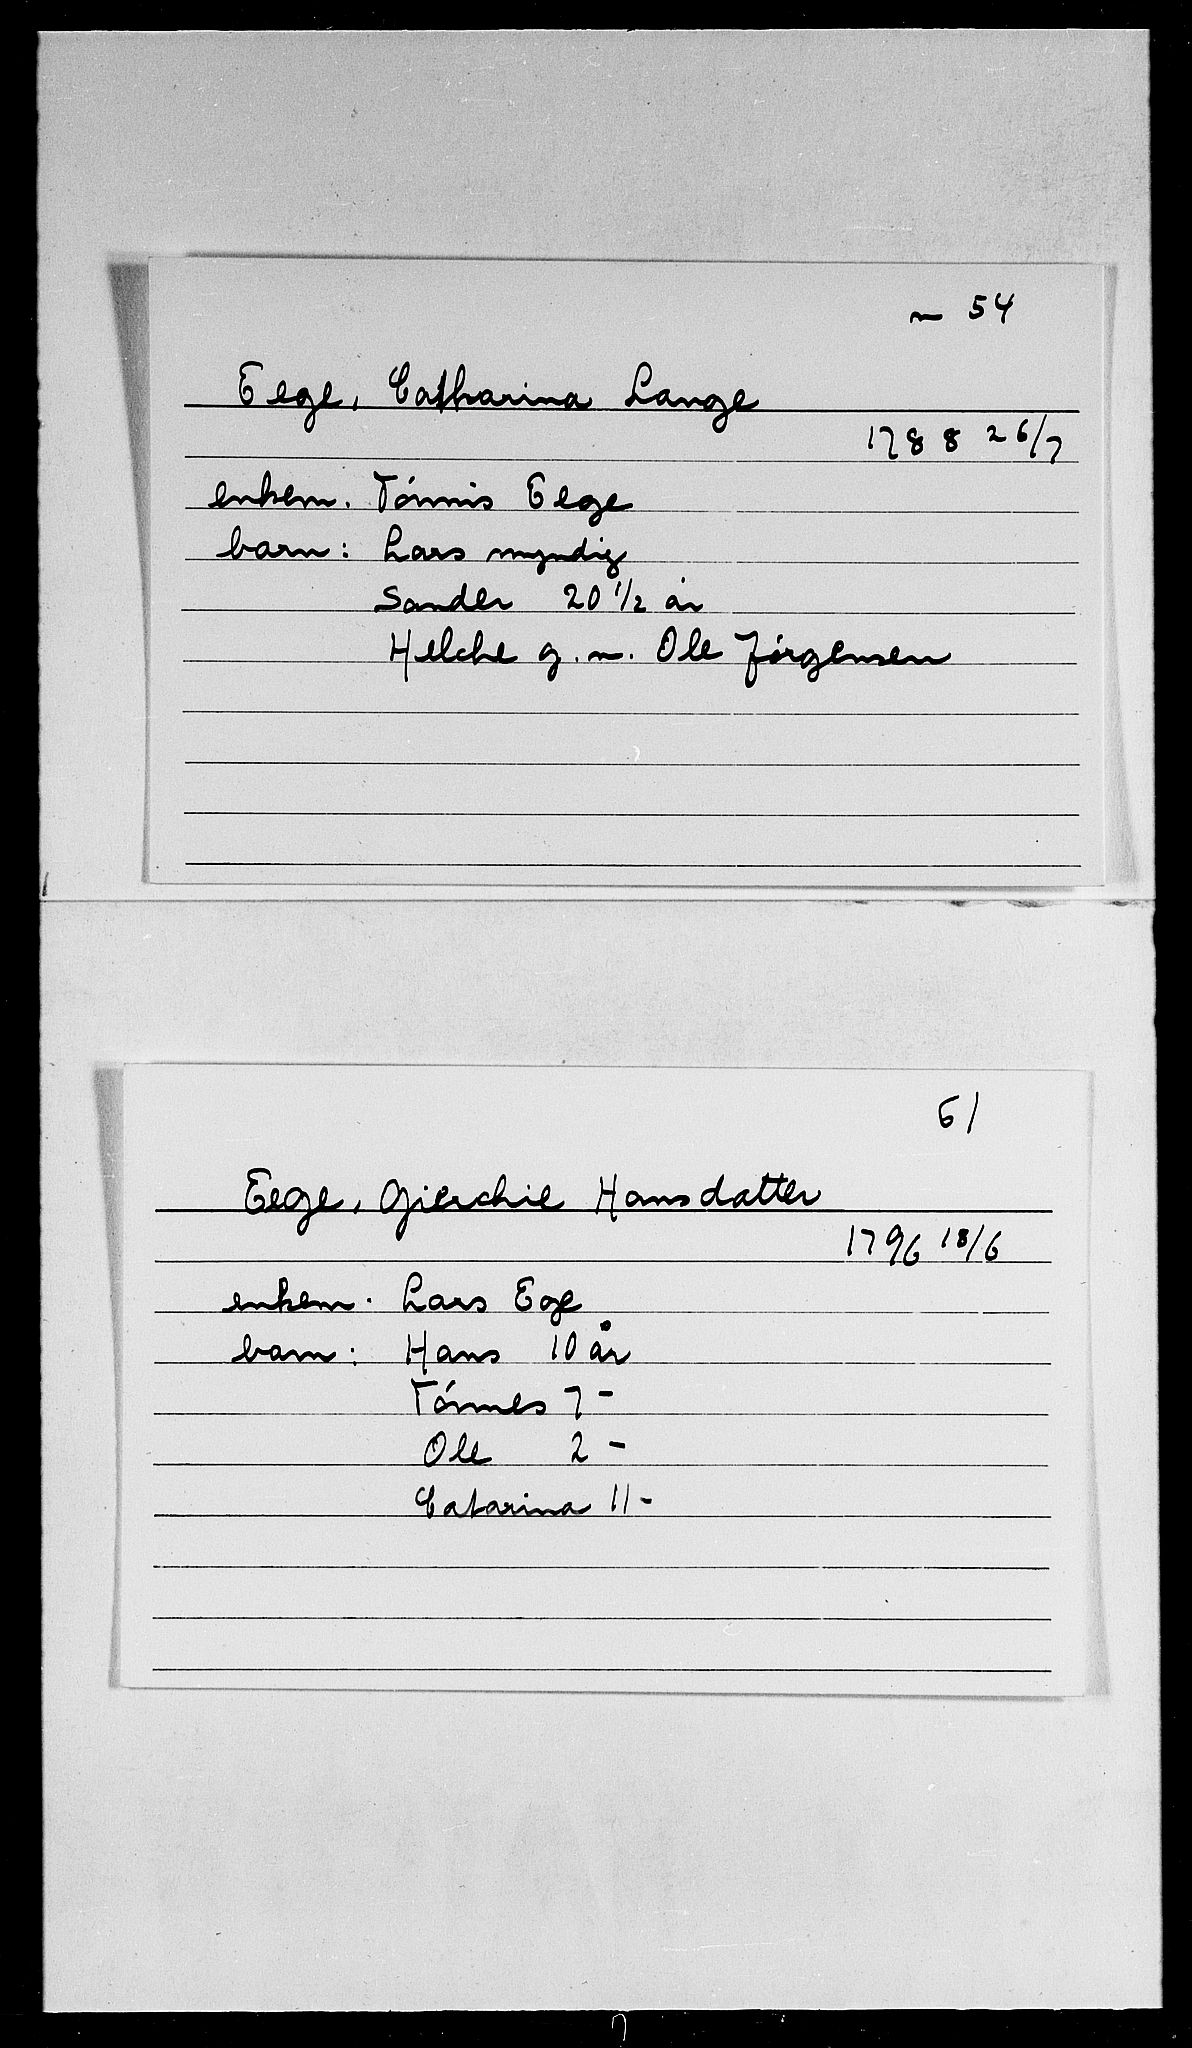 n 54
Eege, Catharina Lange
1788 26/7
enkem. Tónnis Eege
barn: Lars myndig
Sander 20 1/2 år
Helche g.m. Ole Jórgensen
61
Eege, Gierchie Hansdatter
1796 18/6
enkem. Lars Ege
barn: Hans 10 år
Tónnes 7 -
Ole 2 -
Catarina 11 -